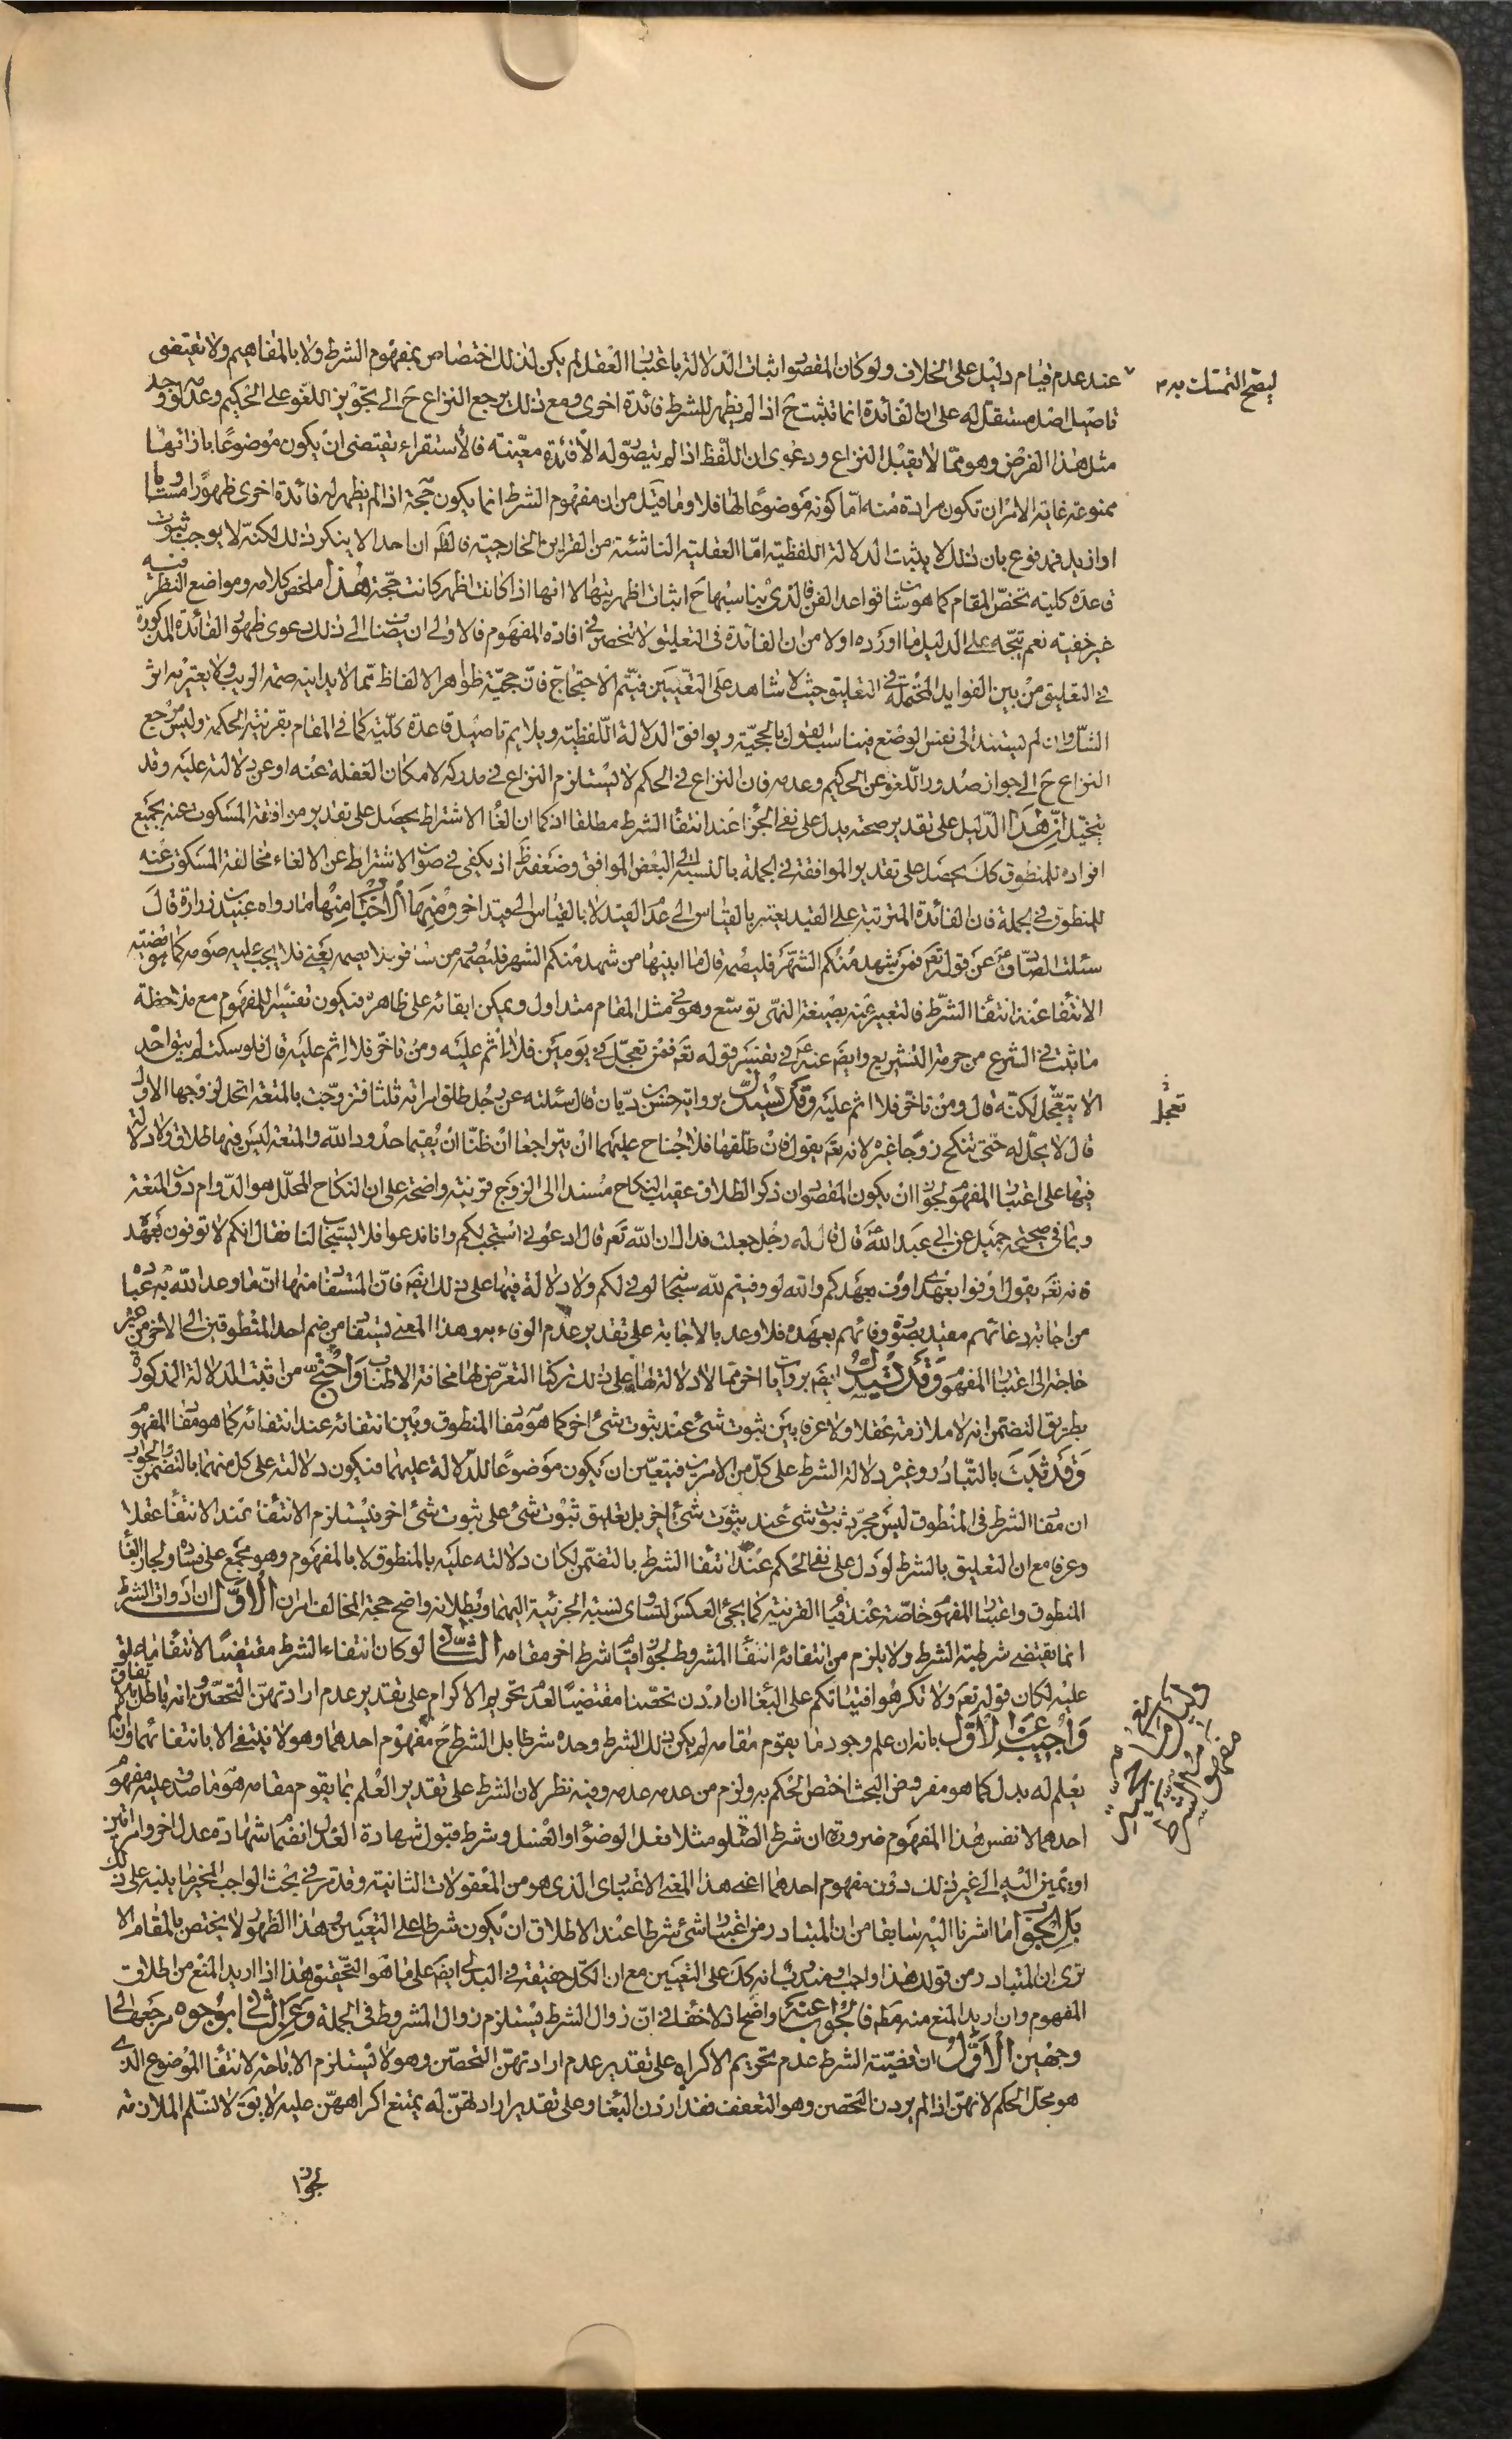 عند عدم قيام دليل على الخلاف ولو كان المقصود اثبات الدلالة باعتبار العقل لم يكن لذلك اختصاص بمفهوم الشرط ولا بالمفاهيم ولا تقتضى
ليصح التمسك به م
تاصيل اصل مستقل له على ان الفائدة انما تثبت ح اذا لم يظهر للشرط فائدة اخرى ومع ذلك يرجع النزاع ح الى تجويز اللغو على الحكيم وعدمه
مثل هذا الفرض وهو مما لا يقبل النزاع ودعوى ان اللفظ اذا لم يتصور له الا فائدة معينة فالاستقراء يقتضى ان يكون موضوعا بازائها
ممنوعة غاية الامر ان تكون مرادة منه اما كونه موضوعا لها فلا وما قيل من ان مفهوم الشرط انما يكون حجة اذا لم يظهر له فائدة اخرى ظهورا مساويا
او ازيد فمدفوع بان ذلك لا يثبت الدلالة اللفظية اما العقلية الناشئة من القراين الخارجية فالظ ان احدا لا ينكر ذلك لكنه لا يوجب ثبوت
قاعدة كلية تخص المقام كما هو شان قواعد الفن فالذى يناسبها ح اثبات اظهريتها لا انها اذا كانت اظهر كانت حجة هذا ملخص كلامه ومواضع النظر فيه
غير خفية نعم يتجه على الدليل ما اورده اولا من ان الفائدة فى التعليق لا تنحصر فى افادة المفهوم فالاولى ان يضاف الى ذلك دعوى ظهور الفائدة المذكورة
فى التعليق من بين الفوايد المحتملة فى التعليق حيث لا شاهد على التعيين فيتم الاحتجاج فان حجية ظواهر الالفاظ مما لا يدانيه وصمة الريب ولا يعتريه اثر
الشك وان لم يستند الى نفس الوضع فيناسب القول بالحجية ويوافق الدلالة اللفظية ويلايم تاصيل قاعدة كلية كما فى المقام بقرينة الحكمة وليس مرجع
النزاع ح الى جواز صدور اللغو عن الحكيم وعدمه فان النزاع فى الحكم لا يستلزم النزاع فى مدركه لامكان الغفلة عنه او عن دلالته عليه وقد
يتخيل ان هذا الدليل على تقدير صحته يدل على نفى الجزاء عند انتفاء الشرط مطلقا اذ كما ان الغاء الاشتراط يحصل على تقدير موافقة المسكوت عنه بجميع
افراده للمنطوق كك يحصل على تقدير الموافقة فى الجملة بالنسبة الى البعض الموافق وضعفه ظ اذ يكفى فى صون الاشتراط عن الالغاء مخالفة المسكوت عنه
للمنطوق فى الجملة فان الفائدة المترتبة على القيد يعتبر بالقياس الى عدم القيد لا بالقياس الى قيد اخر ومنها الاخبار منها ما رواه عبيد بن زرارة قال
سئلت الصادق ع عن قوله تع فمن شهد منكم الشهر فليصمه قال ما ابينها من شهد منكم الشهر فليصمه ومن سافر فلا يصمه يعنى فلا يجب عليه صومه كما هو قضية
الانتفاء عند انتفاء الشرط فالتعبير عنه بصيغة النهى توسع وهو فى مثل المقام متداول ويمكن ابقائه على ظاهره فيكون تفسيرا للمفهوم مع ملاحظة
ما ثبت فى الشرع من حرمة التشريع وايضا عنه ع فى تفسير قوله تع فمن تعجل فى يومين فلا اثم عليه ومن تاخر فلا اثم عليه قال فلو سكت لم يبق احد
الا يتعجل لكنه قال ومن تاخر فلا اثم عليه وقد يستدل برواية حسن بن زيات قال سئلته عن رجل طلق امراته ثلثا فتزوجت بالمتعة اتحل لزوجها الاول
تعجل
قال لا يحل له حتى تنكح زوجا غيره لانه تع يقول فان طلقها فلا جناح عليهما ان يتراجعا ان ظنا ان يقيما حدود الله والمتعة ليس فيها طلاق ولا دلالة
فيها على اعتبار المفهوم لجواز ان يكون المقصود ان ذكر الطلاق عقيب النكاح مسندا الى الزوج قرينة واضحة على ان النكاح المحلل هو الدوام دون المتعة
وبما فى صحيحة جميل عن ابى عبد الله ع قال قال له رجل جعلت فداك ان الله تع قال ادعونى استجب لكم وانا ندعوا فلا يستجاب لنا فقال انكم لا توفون بعهده
فانه تع يقول اوفوا بعهدى اوف بعهدكم والله لو وفيتم لله سبحانه لوفى لكم ولا دلالة فيها على ذلك ايضا فان المستفاد منها ان ما وعد الله به عباده
من اجابة دعائهم مقيد بصورة وفائهم بعهده فلا وعد بالاجابة على تقدير عدم الوفاء به وهذا المعنى يستفاد من ضم احد المنطوقين الى الاخر من غير
حاجة الى اعتبار المفهوم وقد يستدل ايضا بروايات اخر مما لا دلالة لها على ذلك تركنا التعرض لها مخافة الاطناب واحتج من اثبت الدلالة المذكورة
بطريق التضمن انه لا ملازمة عقلا ولا عرفا بين ثبوت شئ عند ثبوت شئ اخر كما هو مفاد المنطوق وبين انتفائه عند انتفائه كما هو مفاد المفهوم
وقد ثبت بالتبادر وغيره دلالة الشرط على كل من الامرين فيتعين ان يكون موضوعا للدلالة عليهما فيكون دلالته على كل منهما بالتضمن والجواب
ان مفاد الشرط فى المنطوق ليس مجرد ثبوت شئ عند ثبوت شئ اخر بل تعليق ثبوت شئ على ثبوت شئ اخر فيستلزم الانتفاء عند الانتفاء عقلا
وعرفا مع ان التعليق بالشرط لو دل على نفى الحكم عند انتفاء الشرط بالتضمن لكان دلالته عليه بالمنطوق لا بالمفهوم وهو مجمع على فساده ولجاز الغاء
المنطوق واعتبار المفهوم خاصة عند قيام القرينة كما يجئ العكس لتساوى نسبة الجزئية اليهما وبطلانه واضح حجة المخالف امران الاول ان ادوات الشرط
انما يقتضى شرطية الشرط ولا يلزم من انتفائه انتفاء المشروط لجواز قيام شرط اخر مقامه الثانى لو كان انتفاء الشرط مقتضيا لانتفاء ما علق
عليه لكان قوله تع ولا تكرهوا فتياتكم على البغاء ان اردن تحصنا مقتضيا لعدم تحريم الاكراه على تقدير عدم ارادتهن التحصن وانه باطل بالاتفاق
واجيب عن الاول بانه ان علم وجود ما يقوم مقامه لم يكن ذلك الشرط وحده شرطا بل الشرط ح مفهوم احدهما وهو لا ينتفى الا بانتفائهما وان لم
يعلم له بدل كما هو مفروض البحث اختص الحكم به ولزم من عدمه عدمه وفيه نظر لان الشرط على تقدير العلم بما يقوم مقامه هو ما صدق عليه مفهوم
احدهما لا نفس هذا المفهوم ضرورة ان شرط الصلوة مثلا فعل الوضوء او الغسل وشرط قبول شهادة العدل انضمام شهادة عدل اخر وامراتين
او يمين اليه الى غير ذلك دون مفهوم احدهما اعنى هذا المعنى الاعتبارى الذى هو من المعقولات الثانية وقد مر فى بحث الواجب المخير ما ينبه على ذلك
بل الجواب ما اشرنا اليه سابقا من ان المتبادر من اعتبار شئ شرطا عند الاطلاق ان يكون شرطا على التعيين وهذا الظهور لا يختص بالمقام الا
ترى ان المتبادر من قولك هذا واجب ومندوب انه كك على التعيين مع ان الكل حقيقة فى البدلى ايضا على ما هو التحقيق هذا اذا اريد المنع من اطلاق
المفهوم وان اريد المنع منه مط فالجواب عنه واضح اذ لا خفاء فى ان زوال الشرط يستلزم زوال المشروط فى الجملة وعن الثانى بوجوه مرجعها الى
وجهين الاول ان قضية الشرط عدم تحريم الاكراه على تقدير عدم ارادتهن التحصن وهو لا يستلزم الاباحة لانتفاء الموضوع الذى
هو محل الحكم لانهن اذا لم يردن التحصن وهو التعفف فقد اردن البغاء وعلى تقدير ارادتهن له يمتنع اكراههن عليه لا يق لا نسلم الملازمة
لجواز